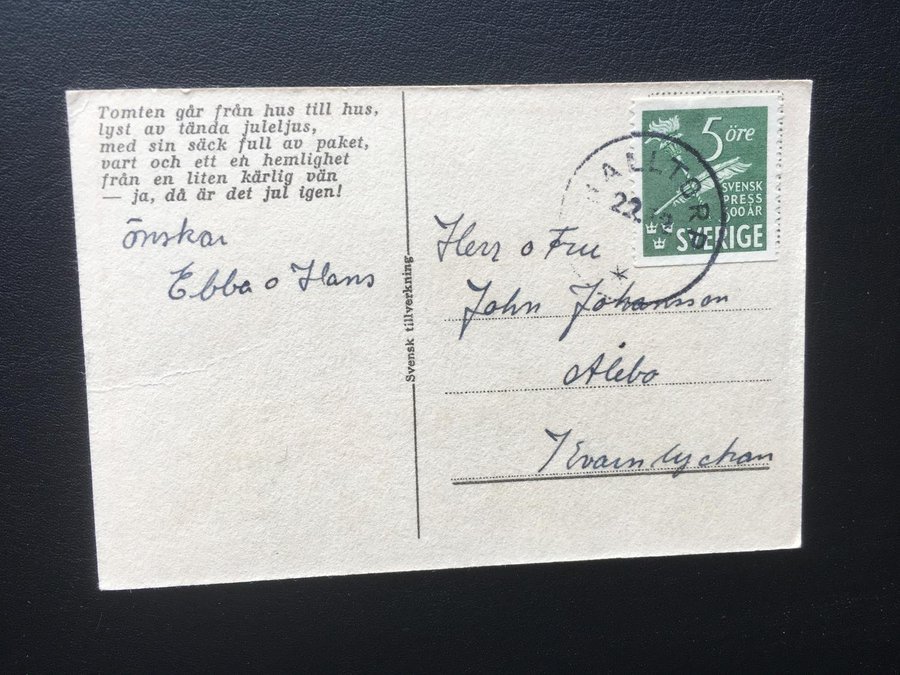 Tomten går från hus till hus,
lyst av tända juleljus,
med sin säck full av paket,
vart och ett en hemlighet
från en liten kärlig vän
— ja, då är det jul igen!
önskar
Ebba o Hans
Svensk tillverkning
5 öre
SVENSK
PRESS
300 ÅR
SVERIGE
HALLTORP
22.12
Herr o Fru
John Johansson
Alebo
Kvarnlyckan